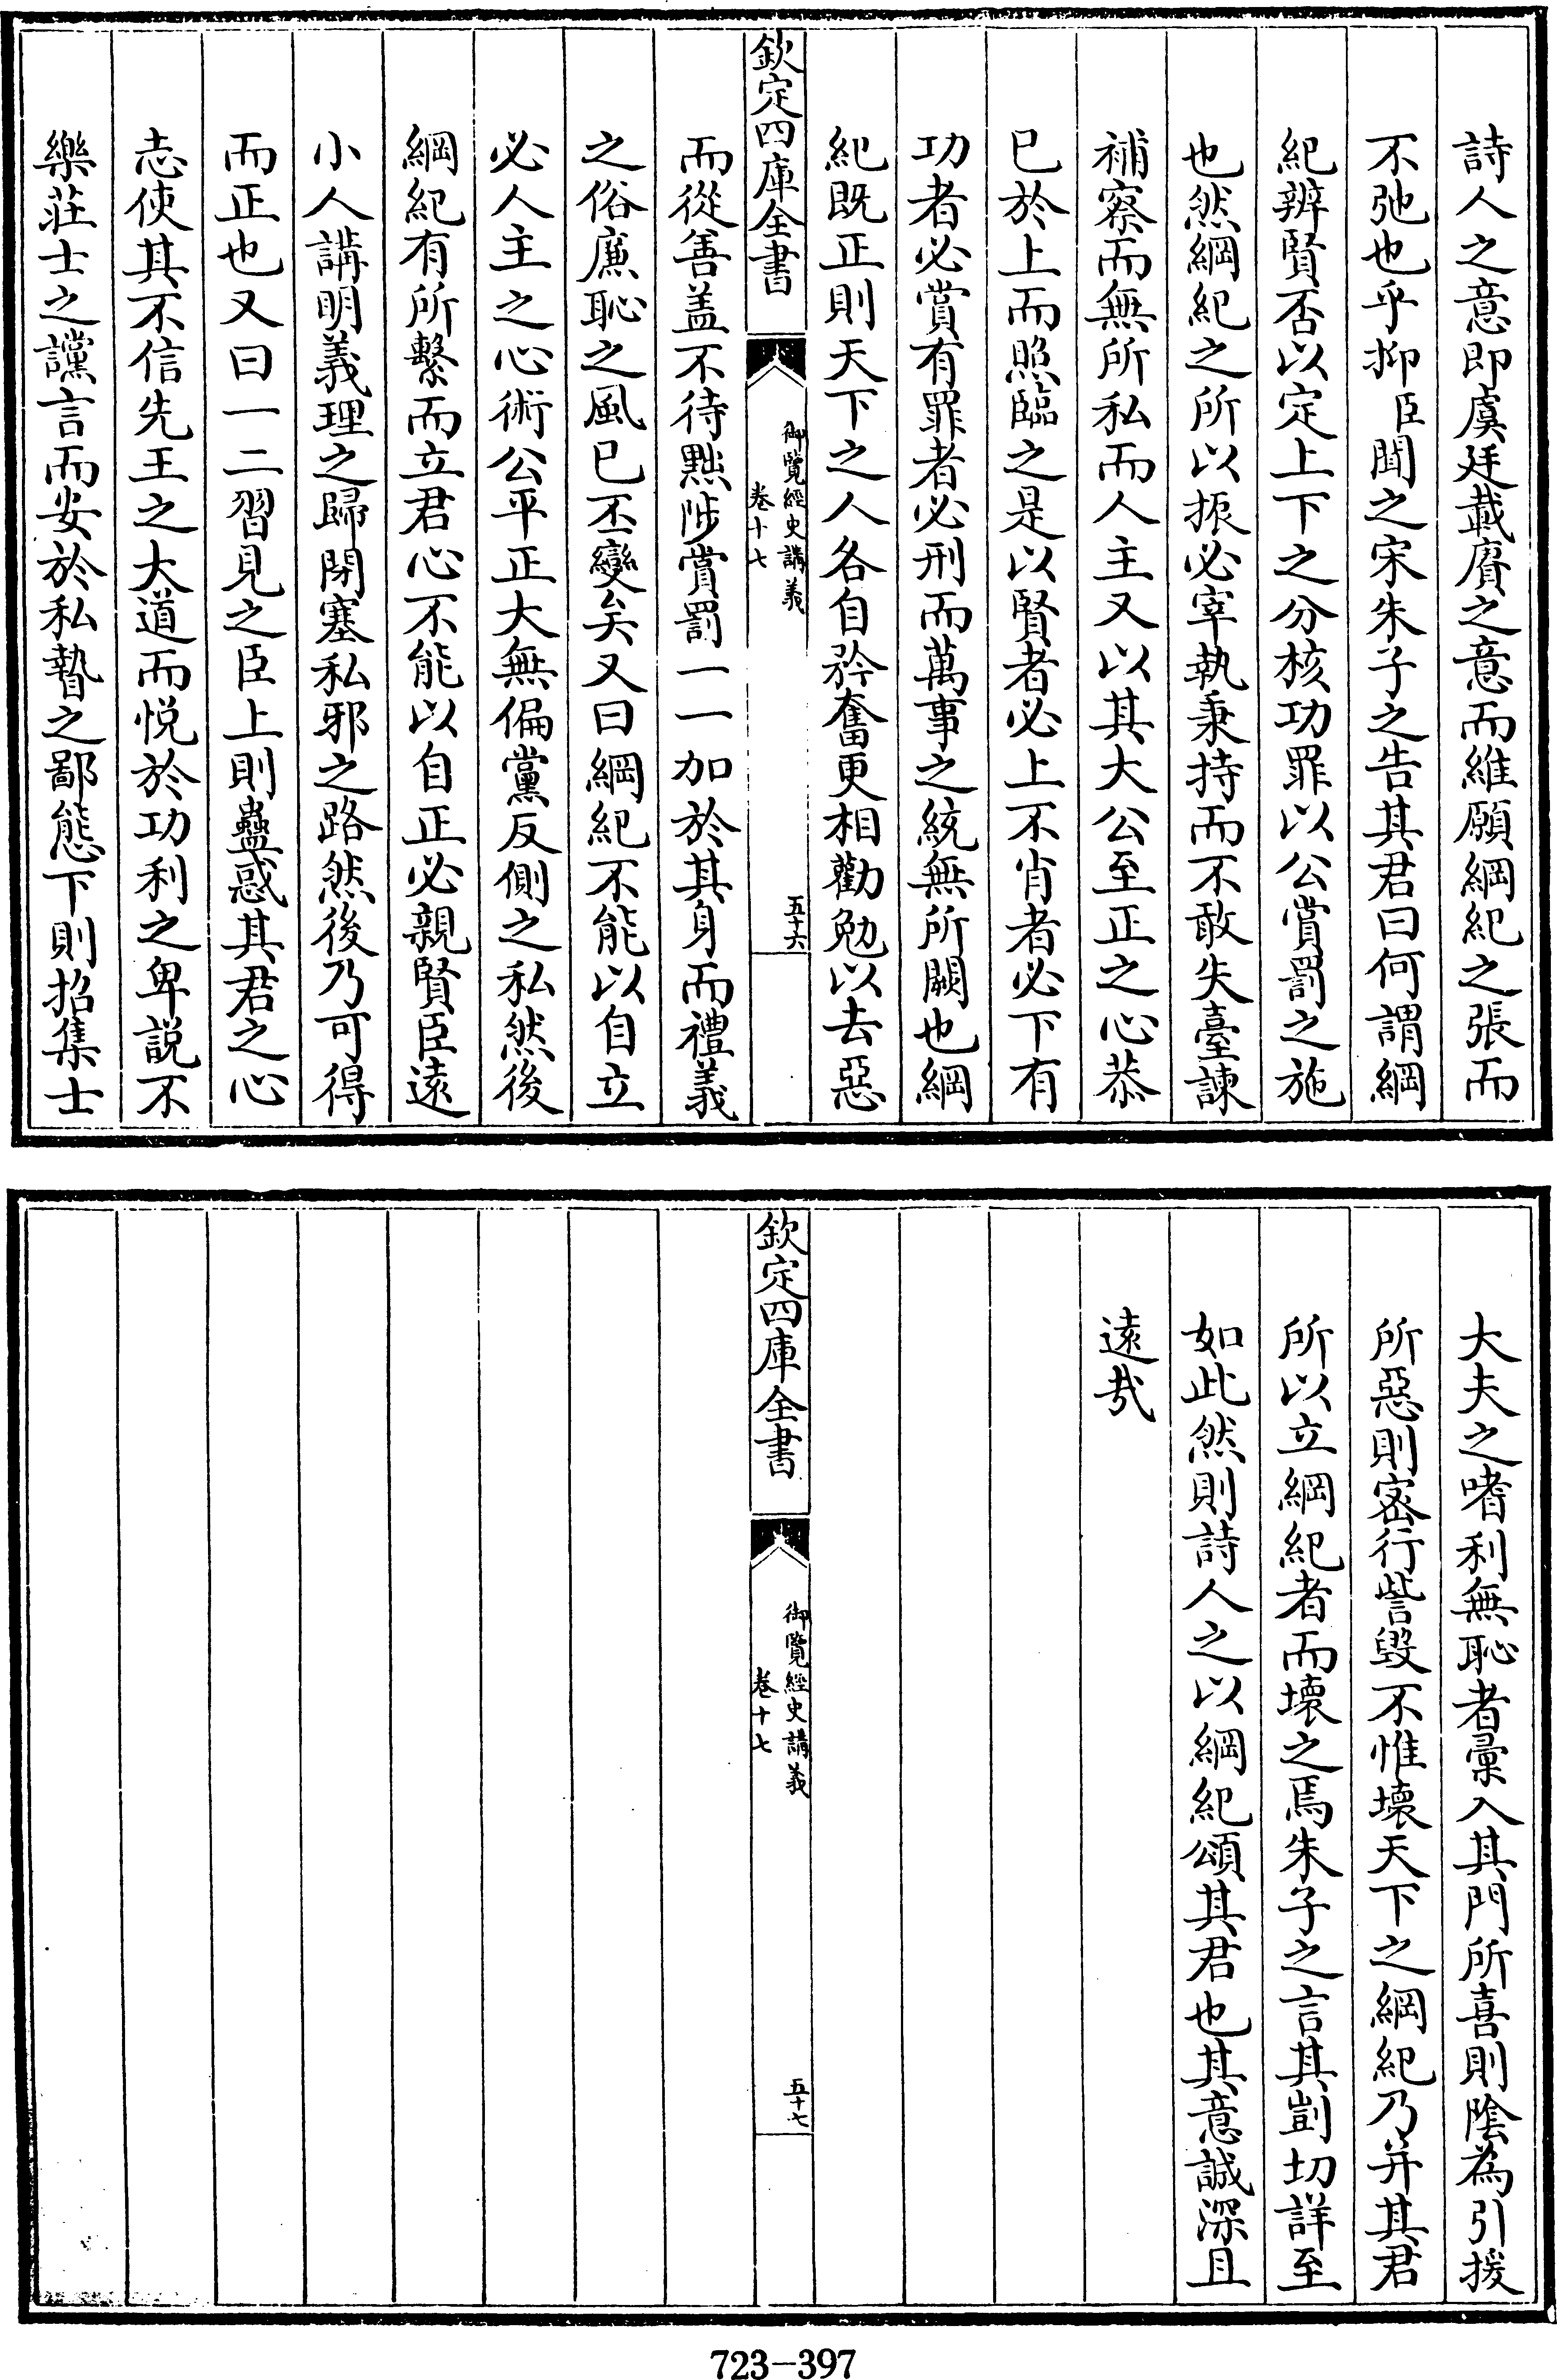 詩人之意即虞廷載賡之意而維願綱紀之張而
不弛也乎抑臣聞之宋朱子之告其君曰何謂綱
紀辨賢否以定上下之分核功罪以公賞罰之施
也然綱紀之所以振必宰執秉持而不敢失臺諫
補察而無所私而人主又以其大公至正之心恭
已於上而照臨之是以賢者必上不肖者必下有
功者必賞有罪者必刑而萬事之統無所闕也綱
紀既正則天下之人各自矜奮更相勸勉以去惡
欽定四庫全書
御覽經史講義
卷十七
五十六
而從善盖不待黜陟賞罰一一加於其身而禮義
之俗廉恥之風已丕變矣又曰綱紀不能以自立
必人主之心術公平正大無偏黨反側之私然後
綱紀有所繫而立君心不能以自正必親賢臣遠
小人講明義理之歸閉塞私邪之路然後乃可得
而正也又曰一二習見之臣上則蠱惑其君之心
志使其不信先王之大道而悅於功利之卑説不
樂莊士之讜言而安於私暬之鄙態下則招集士
大夫之嗜利無恥者彚入其門所喜則陰為引援
所惡則密行訾毀不惟壞天下之綱紀乃并其君
所以立綱紀者而壞之焉朱子之言其剴切詳至
如此然則詩人之以綱紀頌其君也其意誠深且
遠哉
欽定四庫全書
御覽經史講義
卷十七
五十七
723-397